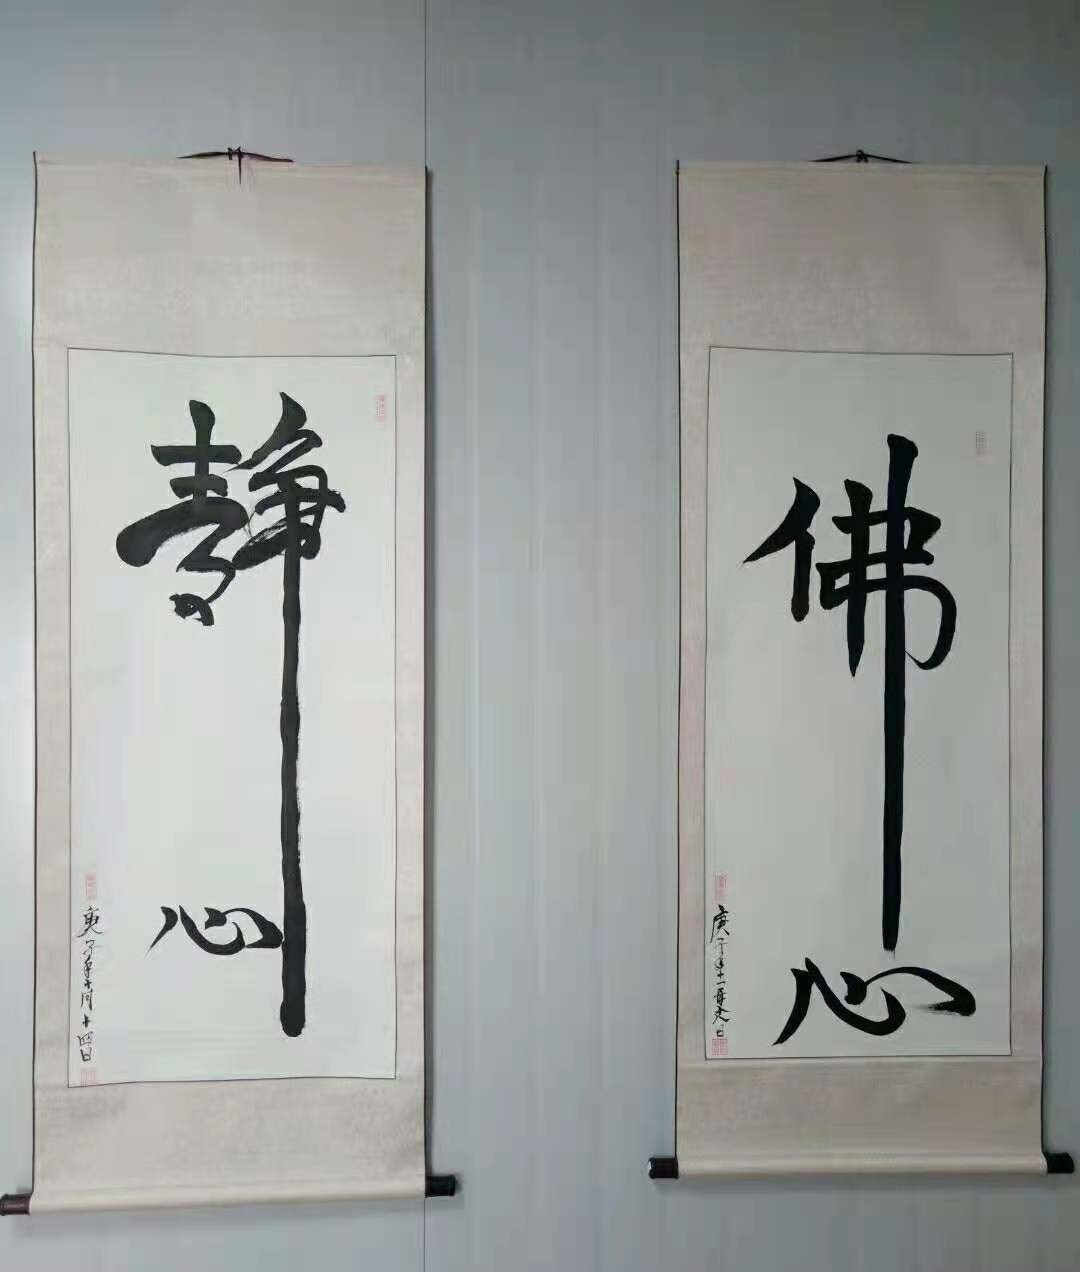 静心
庚子年十月十四日
佛心
庚子年十一月